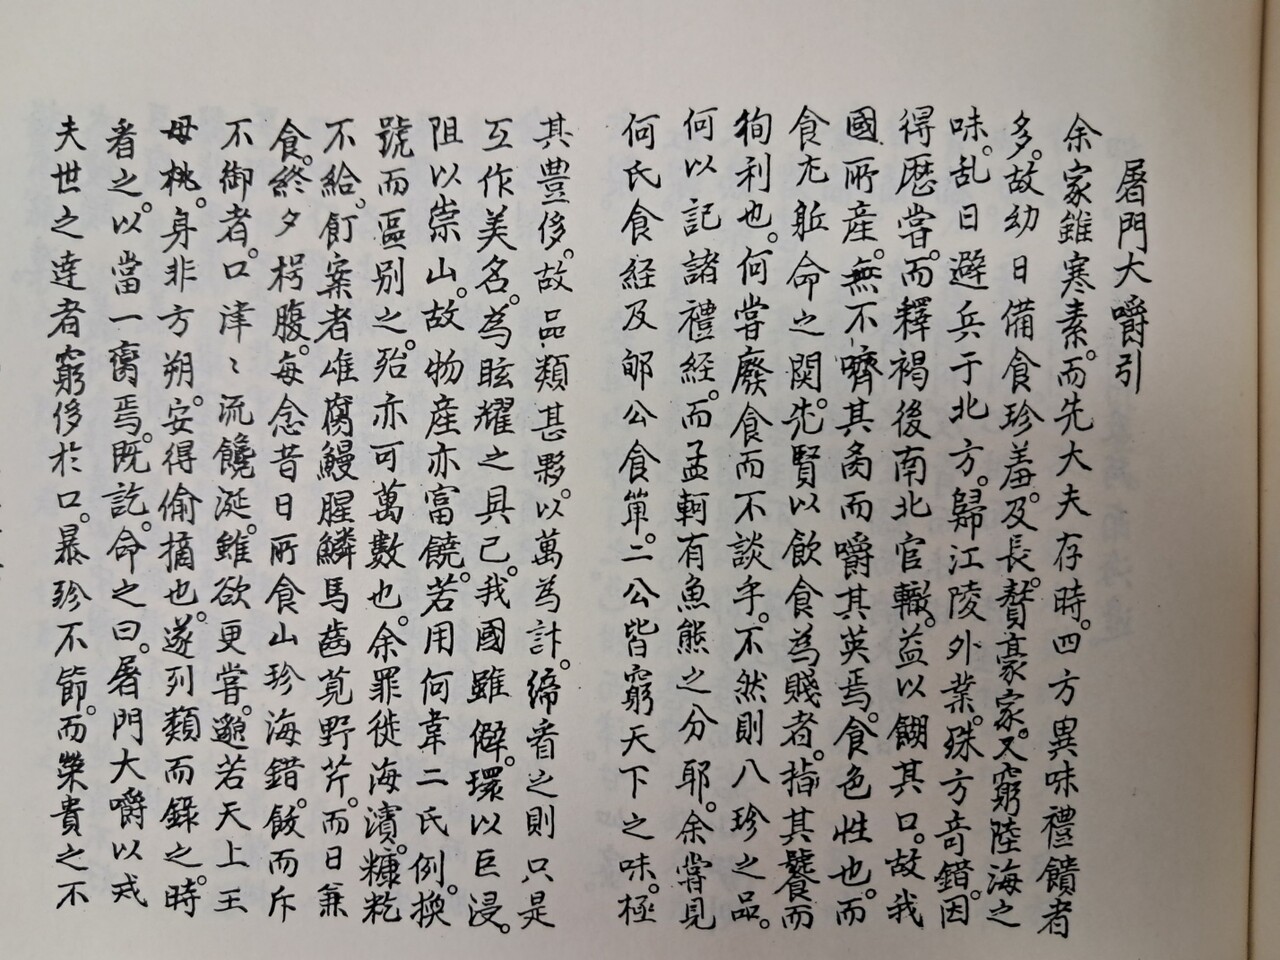 屠門大嚼引
余家雖寒素。而先大夫存時。四方異味禮饋者
多。故幼日備食珍羞。及長。贅豪家。又窮陸海之
味。乱日避兵于北方。歸江陵外業。殊方奇錯。因
得歴嘗。而釋褐後南北官轍。益以餬其口。故我
國所産。無不嚌其胾而嚼其英焉。食色性也。而
食尤躯命之関。先賢以飲食為賤者。指其饕而
狥利也。何嘗廢食而不談乎。不然則八珍之品。
何以記諸禮經。而孟軻有魚熊之分耶。余嘗見
何氏食経及郇公食單。二公皆窮天下之味。極
其豊侈。故品類甚夥。以萬為計。締看之則只是
互作美名。為眩耀之具已。我國雖僻。環以巨浸。
阻以崇山。故物産亦富饒。若用何韋二氏例。換
號而區别之。殆亦可萬數也。余罪徙海濱。糠籺
不給。飣案者唯腐鰻腥鱗馬齒莧野芹。而日兼
食。終夕枵腹。每念昔日所食山珍海錯。飫而斥
不御者。口津〻流饞涎。雖欲更嘗。邈若天上王
母桃。身非方朔。安得偷摘也。遂列類而錄之。時
看之。以當一臠焉。既訖。命之曰。屠門大嚼以戒
夫世之達者窮侈於口。暴殄不節。而榮貴之不